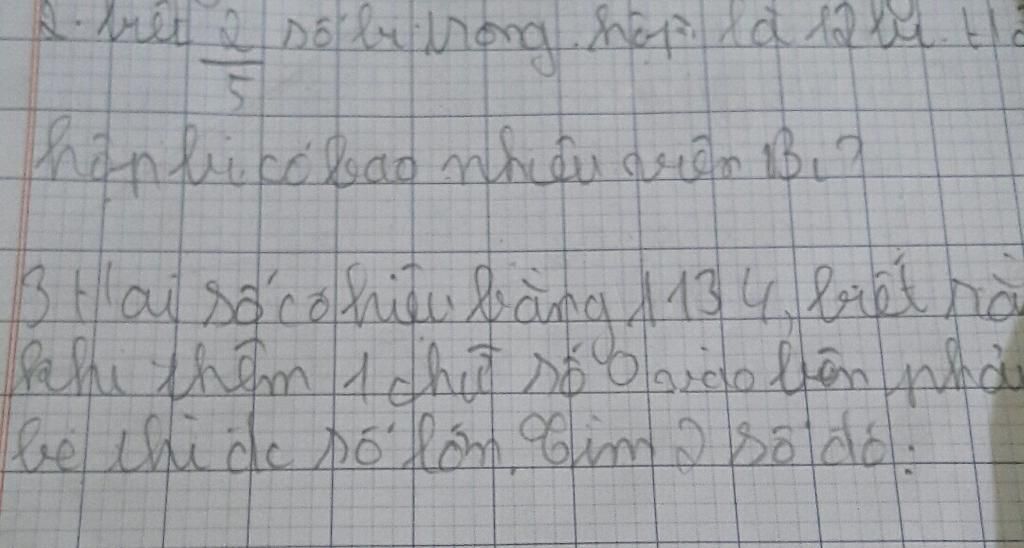 2. biết 2/5 số bi trong hộp là 12 bi. H
hộp bi có bao nhiêu viên Bi?
3 Hai số có hiệu bằng 1134, biết rằ
khi thêm 1 chữ số 0 vào bên phải
bé thì dc số lớn. Tìm 2 số đó.